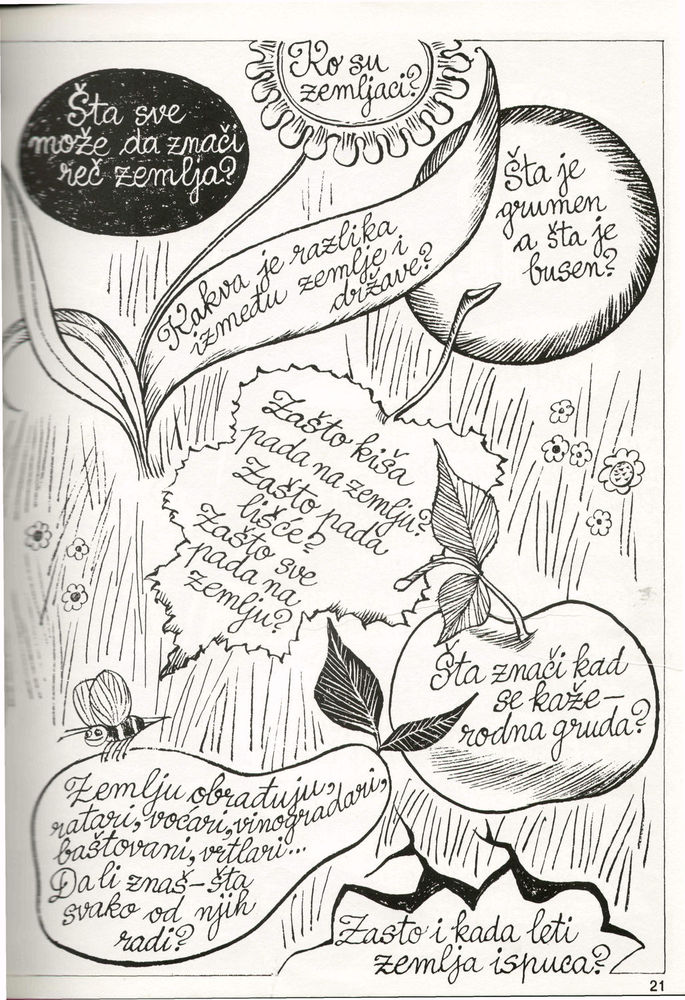 Ko su
zemljaci?
Šta sve
može da znači
reč zemlja?
Šta je
grumen
a šta je
busen?
Kakva je razlika
između zemlje i
države?
Zašto kiša
pada na zemlju?
Zašto pada
lišće?
Zašto sve
pada na
zemlju?
Šta znači kad
se kaže—
rodna gruda?
Zemlju obrađuju,
ratari, voćari, vinogradari,
baštovani, vrtlari...
Da li znaš—šta
svako od njih
radi?
Zasto i kada leti
zemlja ispuca?
21